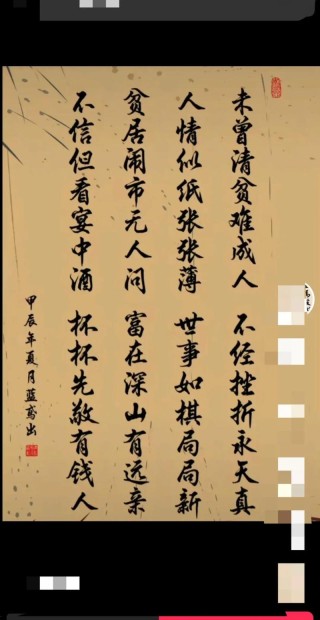 未曾清贫难成人 不经挫折永天真
人情似纸张张薄 世事如棋局局新
贫居闹市无人问 富在深山有远亲
不信但看宴中酒 杯杯先敬有钱人
甲辰年夏月蓝鸢出